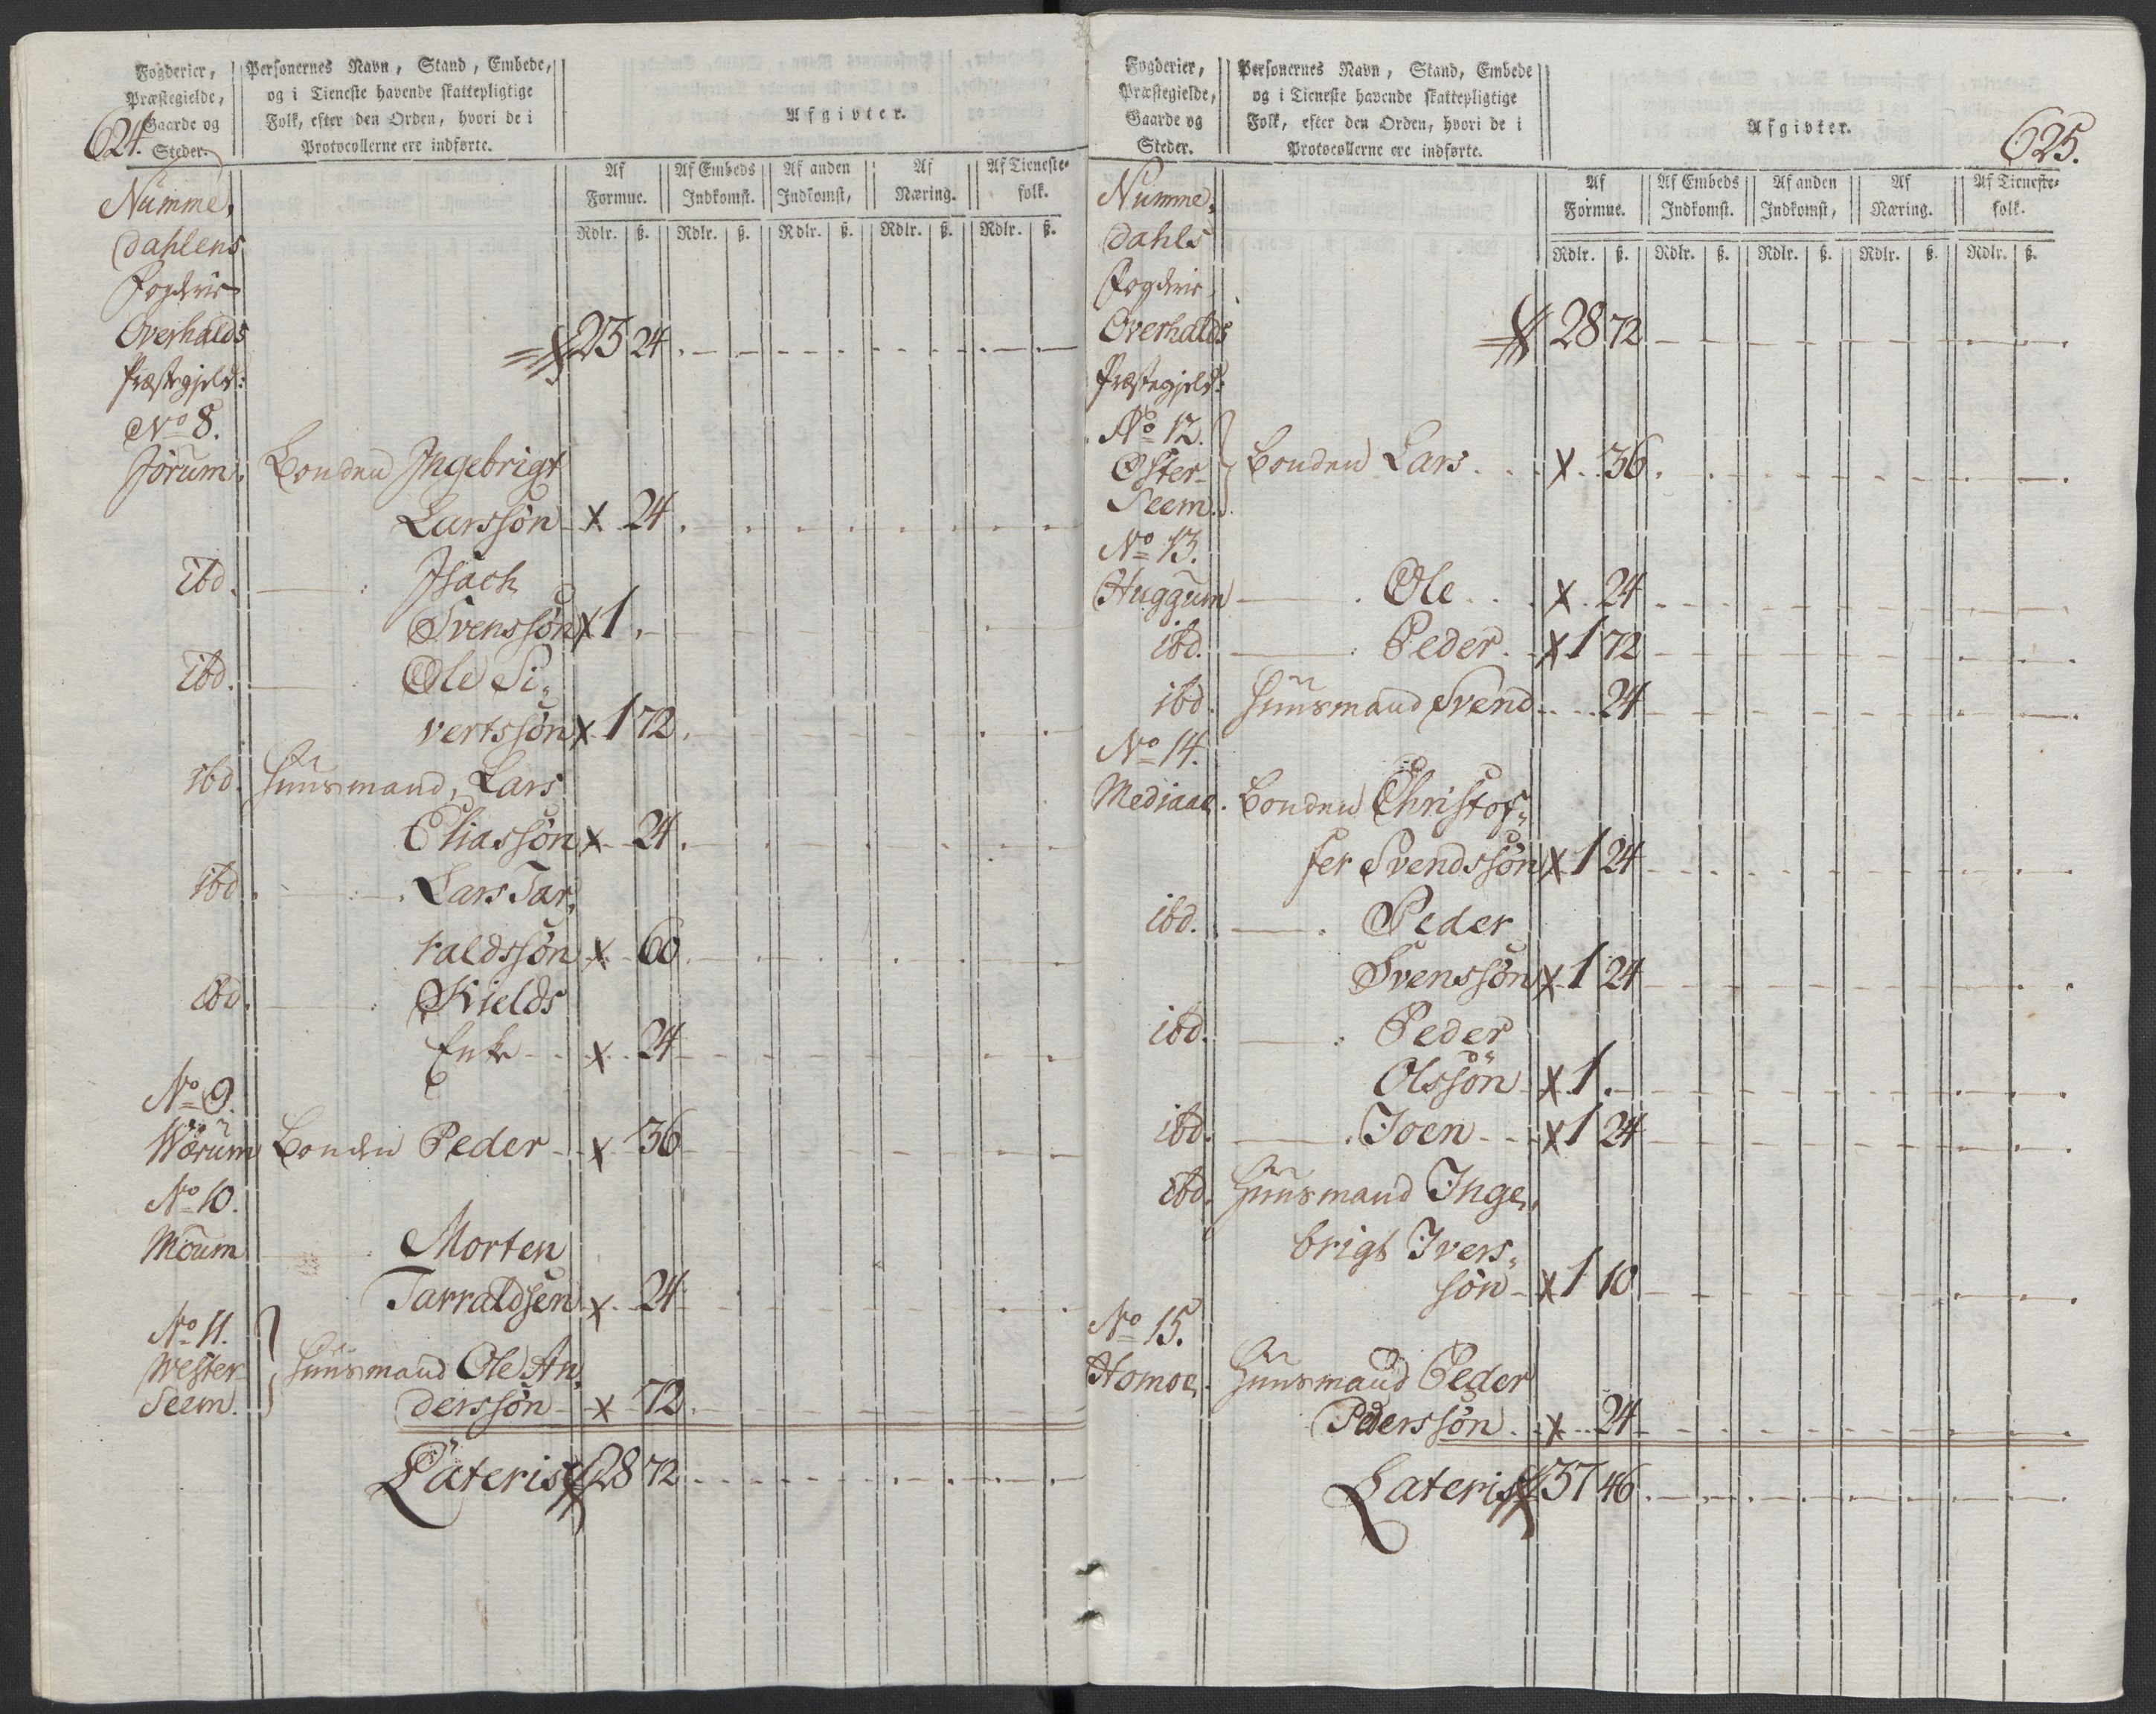 624.
Fogderier,
Præstegielde,
Gaarde og
Steder.
Personernes Navn, Stand, Embede,
og i Tieneste havende skattepligtige
Folk, efter den Orden, hvori de i
Protocollerne ere indførte.
Afgivter.
Af Formue. Af Embeds Indkomst. Af anden Indkomst, Af Næring. Af Tieneste- folk.
Rdlr. ß. Rdlr. ß. Rdlr. ß. Rdlr. ß. Rdlr. ß.
Numme,
dahlens
Fogderie
Overhalds 23 24
Præstegjeld:
No 8.
Jørum. Bonden Ingebrigt
Larssøn x 24
ibd. Isach
Svenssøn x 1
ibd. Ole Si,
vertssøn x 1 72
ibd. Huusmand, Lars
Eliassøn x 24
ibd. Lars Tar,
raldssøn x 60
ibd. Kields
Enke x 24
No 9.
Wørum Bonden Peder x 36
No 10.
Moum Morten
Tarraldsen x 24
No 11.
Wester- Huusmand Ole An,
Seem. derssøn x 72
Lateris 28 72
625.
Fogderier,
Præstegielde,
Gaarde og
Steder.
Personernes Navn, Stand, Embede
og i Tieneste havende skattepligtige
Folk, efter den Orden, hvori de i
Protocollerne ere indførte.
Afgivter.
Af Formue. Af Embeds Indkomst. Af anden Indkomst, Af Næring. Af Tieneste- folk.
Rdlr. ß. Rdlr. ß. Rdlr. ß. Rdlr. ß. Rdlr. ß.
Numme,
dahls
Fogderie
Overhalds 28 72
Præstegjeld:
No 12.
Øster- Bonden Lars x 36
Seem.
No 13.
Huggum Ole x 24
ibd. Peder x 1 72
ibd. Huusmand Svend 24
No 14.
Mediaae. Bonden Christof,
fer Svendssøn x 1 24
ibd. Peder
Svenssøn x 1 24
ibd. Peder
Olssøn x 1
ibd. Joen x 1 24
ibd. Huusmand Inge,
brigt Ivers,
søn x 1 10
No 15.
Homoe. Huusmand Peder
Pederssøn x 24
Lateris 37 46